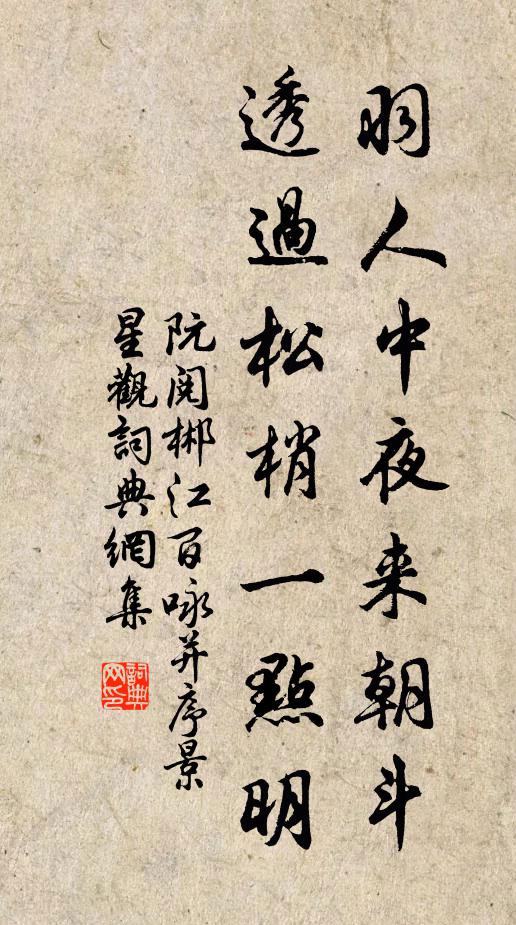 羽人中夜来朝斗
透過松梢一點明
阮閱郴江百咏并序景
星觀詞典網集
詞典网印